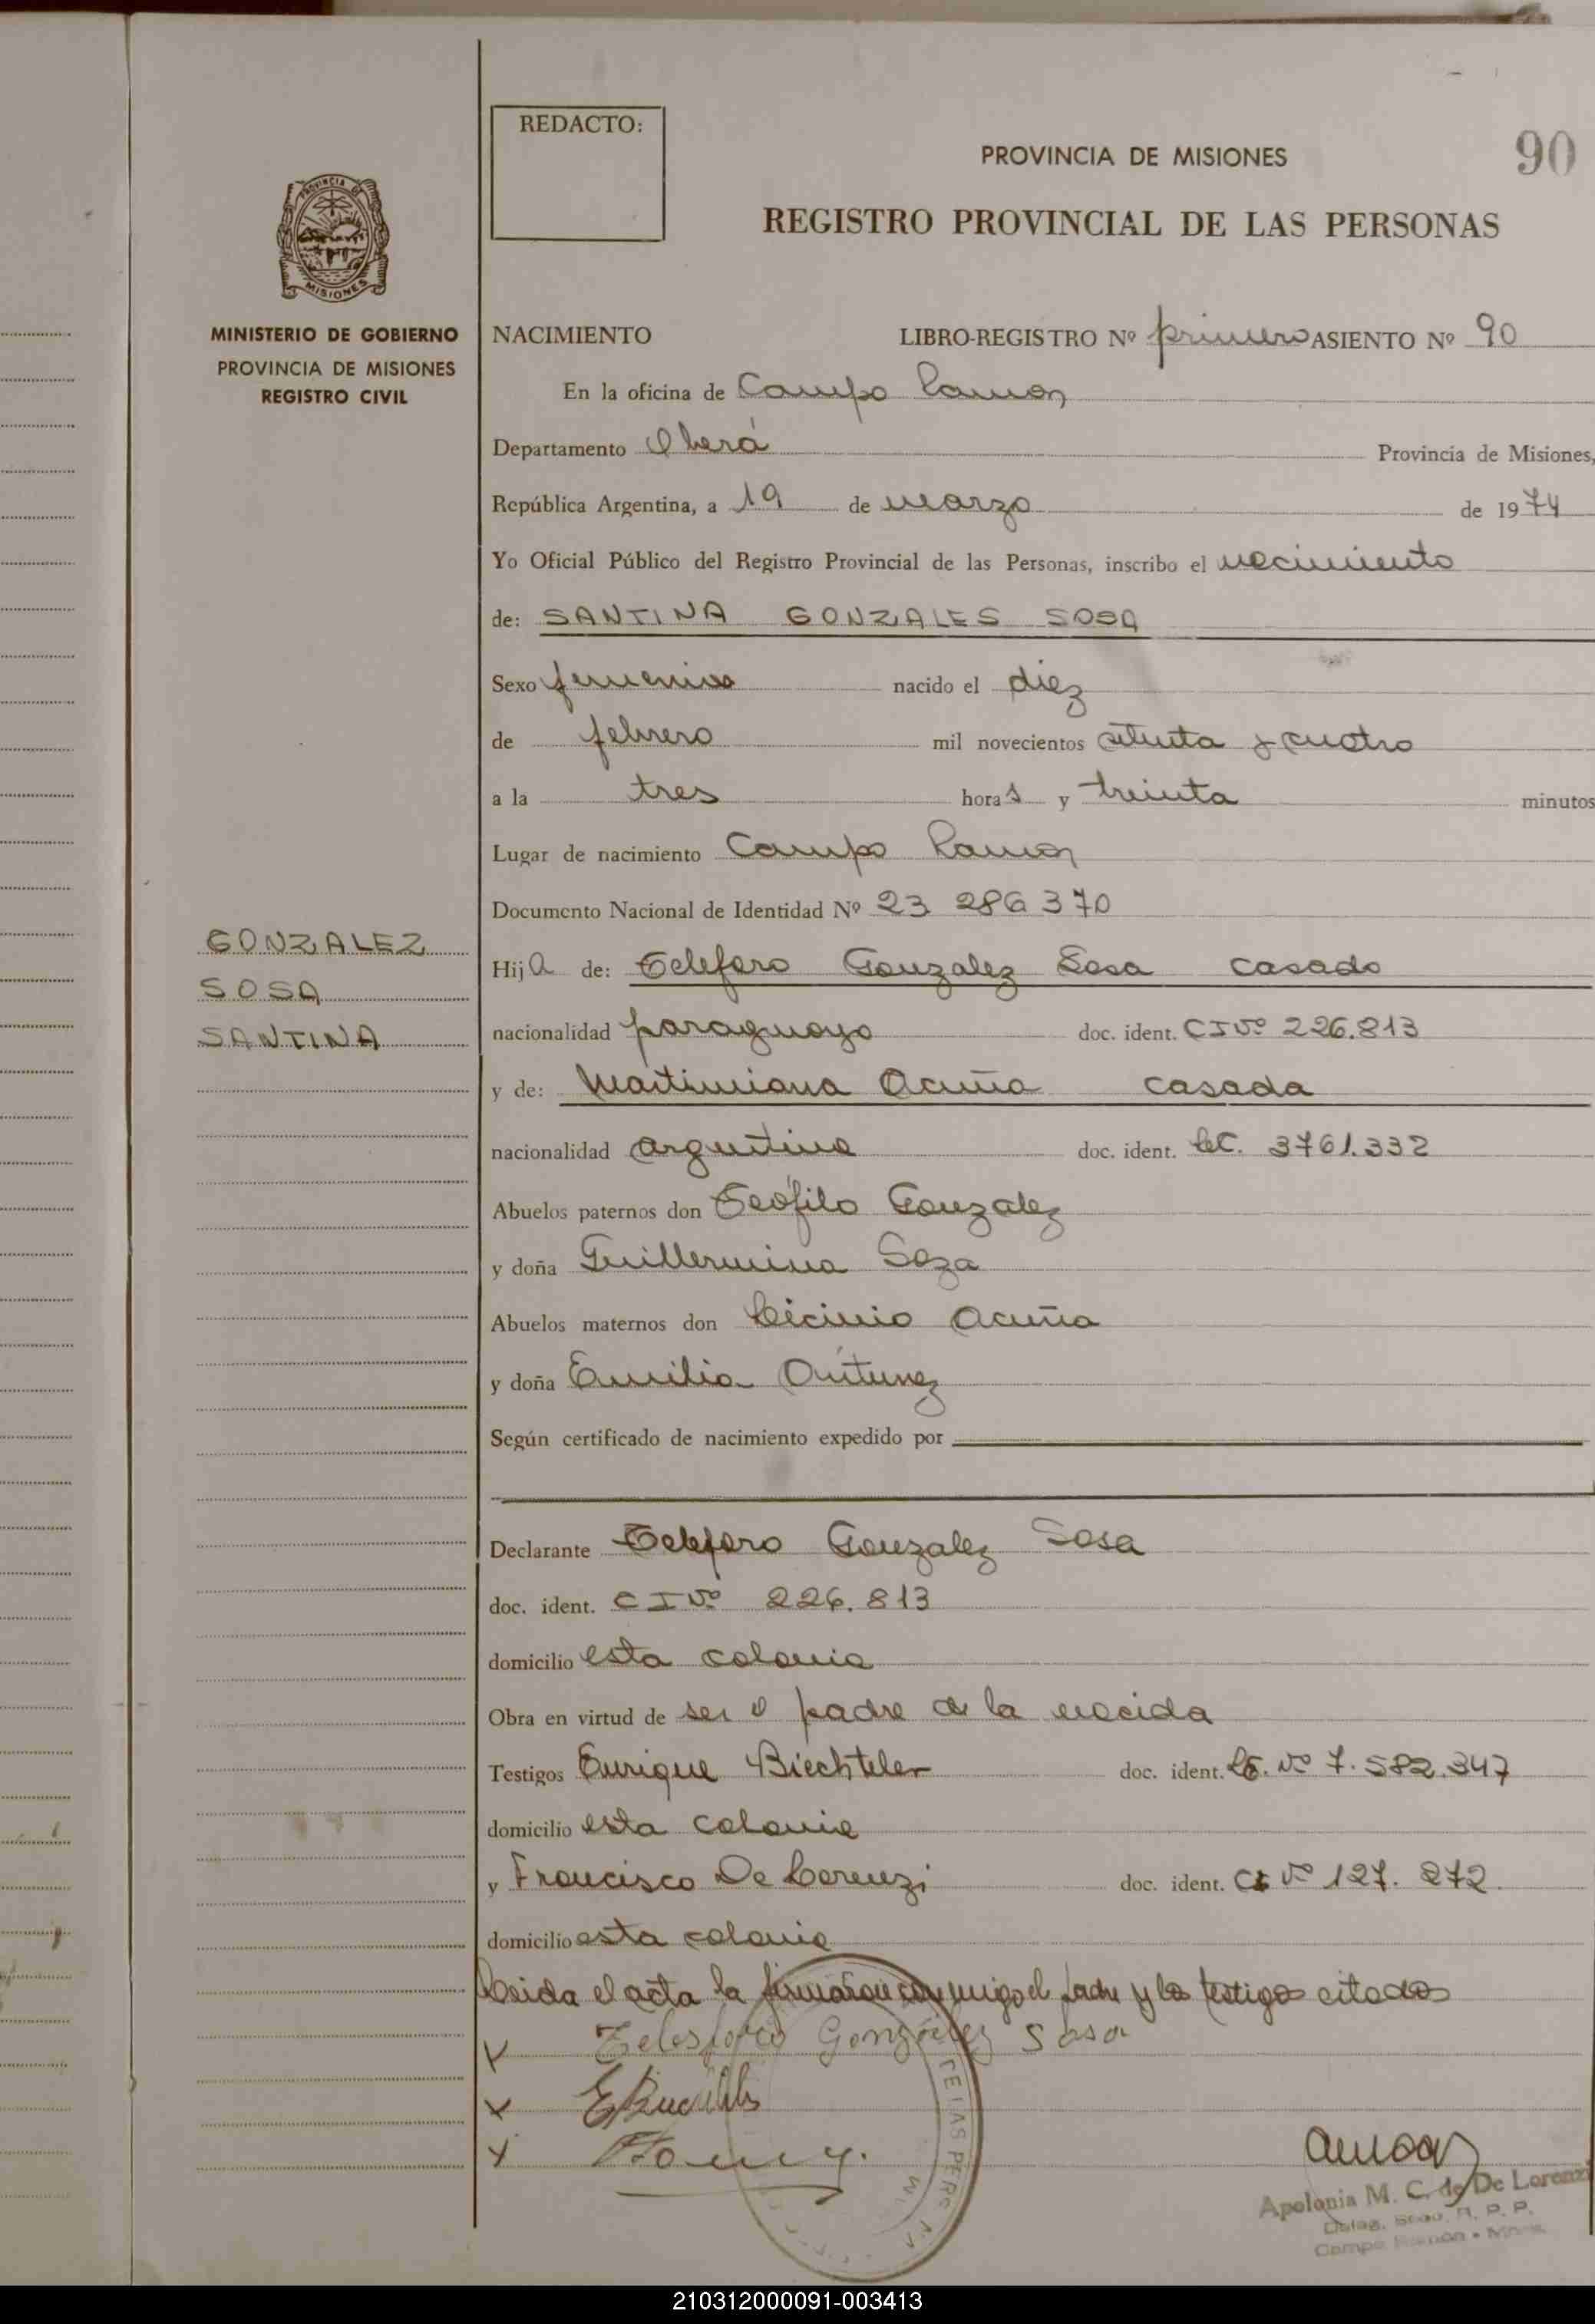 REDACTO:
PROVINCIA DE MISIONES
90
REGISTRO PROVINCIAL DE LAS PERSONAS
PROVINCIA DE
MISIONES
MINISTERIO DE GOBIERNO
PROVINCIA DE MISIONES
REGISTRO CIVIL
GONZALEZ
SOSA
SANTINA
NACIMIENTO LIBRO-REGISTRO Nº primero ASIENTO Nº 90
En la oficina de Campo Ramon
Departamento Oberá Provincia de Misiones,
República Argentina, a 19 de marzo de 1974
Yo Oficial Público del Registro Provincial de las Personas, inscribo el nacimiento
de: SANTINA GONZALES SOSA
Sexo femenino nacido el diez
de febrero mil novecientos setenta y cuatro
a la tres horas y treinta minutos
Lugar de nacimiento Campo Ramon
Documento Nacional de Identidad Nº 23 286 370
Hija de: Telefora Gonzalez Sosa casado
nacionalidad paraguayo doc. ident. CI Nº 226.813
y de: Martiniana Acuña casada
nacionalidad argentina doc. ident. LC. 3761.332
Abuelos paternos don Teófilo Gonzalez
y doña Guillermina Soza
Abuelos maternos don Licinio Acuña
y doña Emilia Antunez
Según certificado de nacimiento expedido por
Declarante Telefora Gonzalez Sosa
doc. ident. CI Nº 226.813
domicilio esta colonia
Obra en virtud de ser el padre de la nacida
Testigos Enrique Biechteler doc. ident. LE. Nº 7.582.347
domicilio esta colonia
y Francisco De Lorenzi doc. ident. CI Nº 127.272.
domicilio esta colonia
Leida el acta la firmaron conmigo el padre y los testigos citados
x Telesforo González Sosa
x
x
Apolonia M. C. de De Lorenzi
R. P. P.
Campo Ramón - Mnes.
210312000091-003413